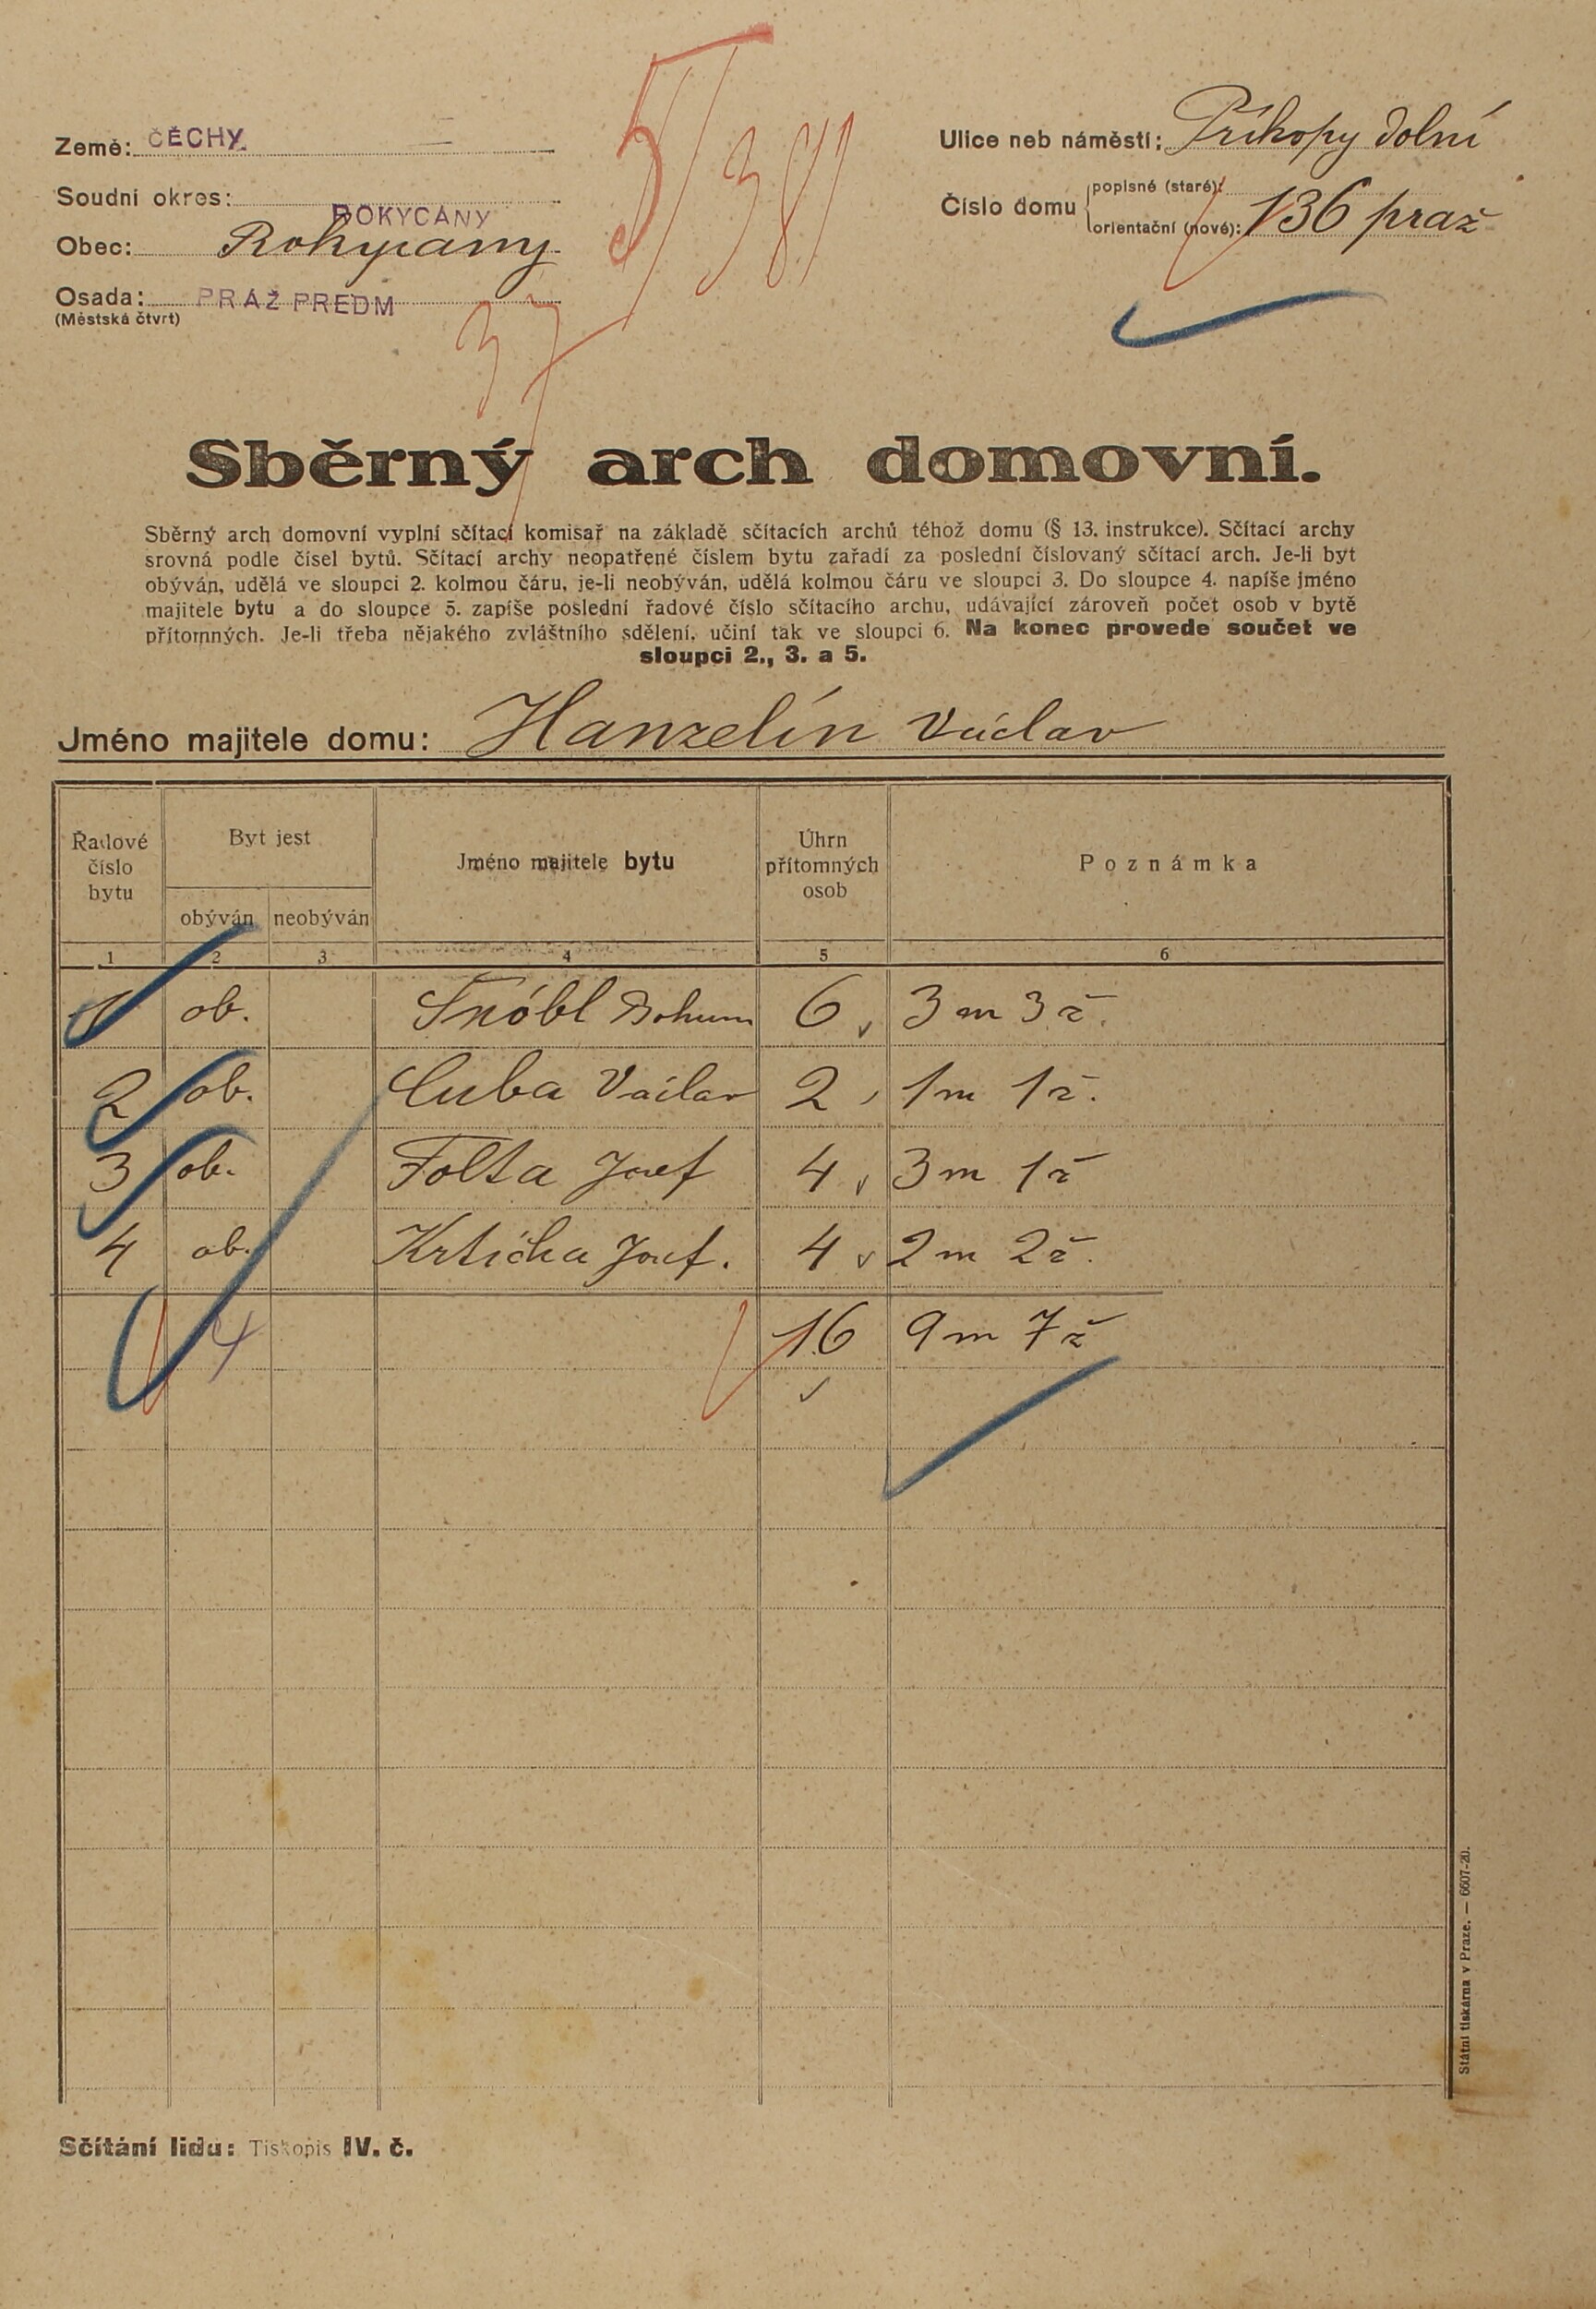 5/381
37
Země: ČECHY
Soudní okres: ROKYCANY
Obec: Rokycany
Osada: PRAŽ PREDM
(Městská čtvrt)
Ulice neb náměstí: Příkopy dolní
Číslo domu
popisné (staré):
orientační (nové): 136 praž
Sběrný arch domovní.
Sběrný arch domovní vyplní sčítací komisař na základě sčítacích archů téhož domu (§ 13. instrukce). Sčítací archy
srovná podle čísel bytů. Sčítací archy neopatřené číslem bytu zařadí za poslední číslovaný sčítací arch. Je-li byt
obýván, udělá ve sloupci 2. kolmou čáru, je-li neobýván, udělá kolmou čáru ve sloupci 3. Do sloupce 4. napíše jméno
majitele bytu a do sloupce 5. zapíše poslední řadové číslo sčítacího archu, udávající zároveň počet osob v bytě
přítomných. Je-li třeba nějakého zvláštního sdělení, učiní tak ve sloupci 6. Na konec provede součet ve
sloupci 2., 3. a 5.
Jméno majitele domu: Hanzelín Václav
Řadové číslo bytu
Byt jest
obýván
neobýván
Jméno majitele bytu
Úhrn přítomných osob
Poznámka
1 2 3 4 5 6
1 ob. Bohum 6 3 m 3 ž.
2 ob. Cuba Václav 2 1 m 1 ž.
3 ob. Folta Josef 4 3 m 1 ž
4 ob. Krtička Josef. 4 2 m 2 ž.
4 16 9 m 7 ž
Státní tiskárna v Praze. — 6607-20.
Sčítání lidu: Tiskopis IV. č.